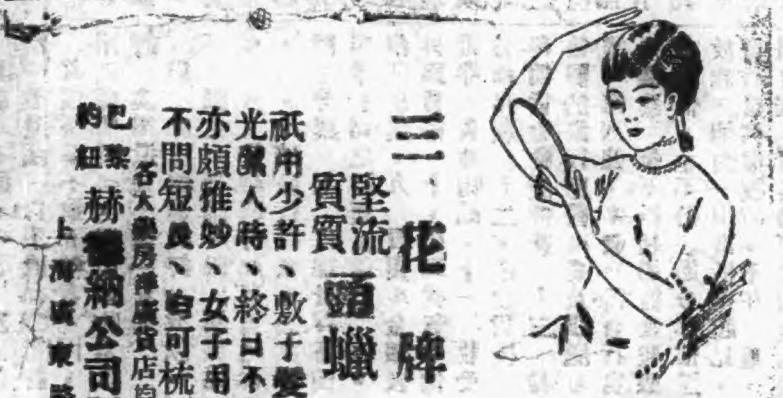 三花牌
堅質
流質
頭蠟
祇用少許、敷于髮
光 人時、終日不
亦頗雅妙、女子用
不問短長、均可梳
各大藥房洋廣貨店均
巴黎
紐約
赫德納公司
上海廣東路